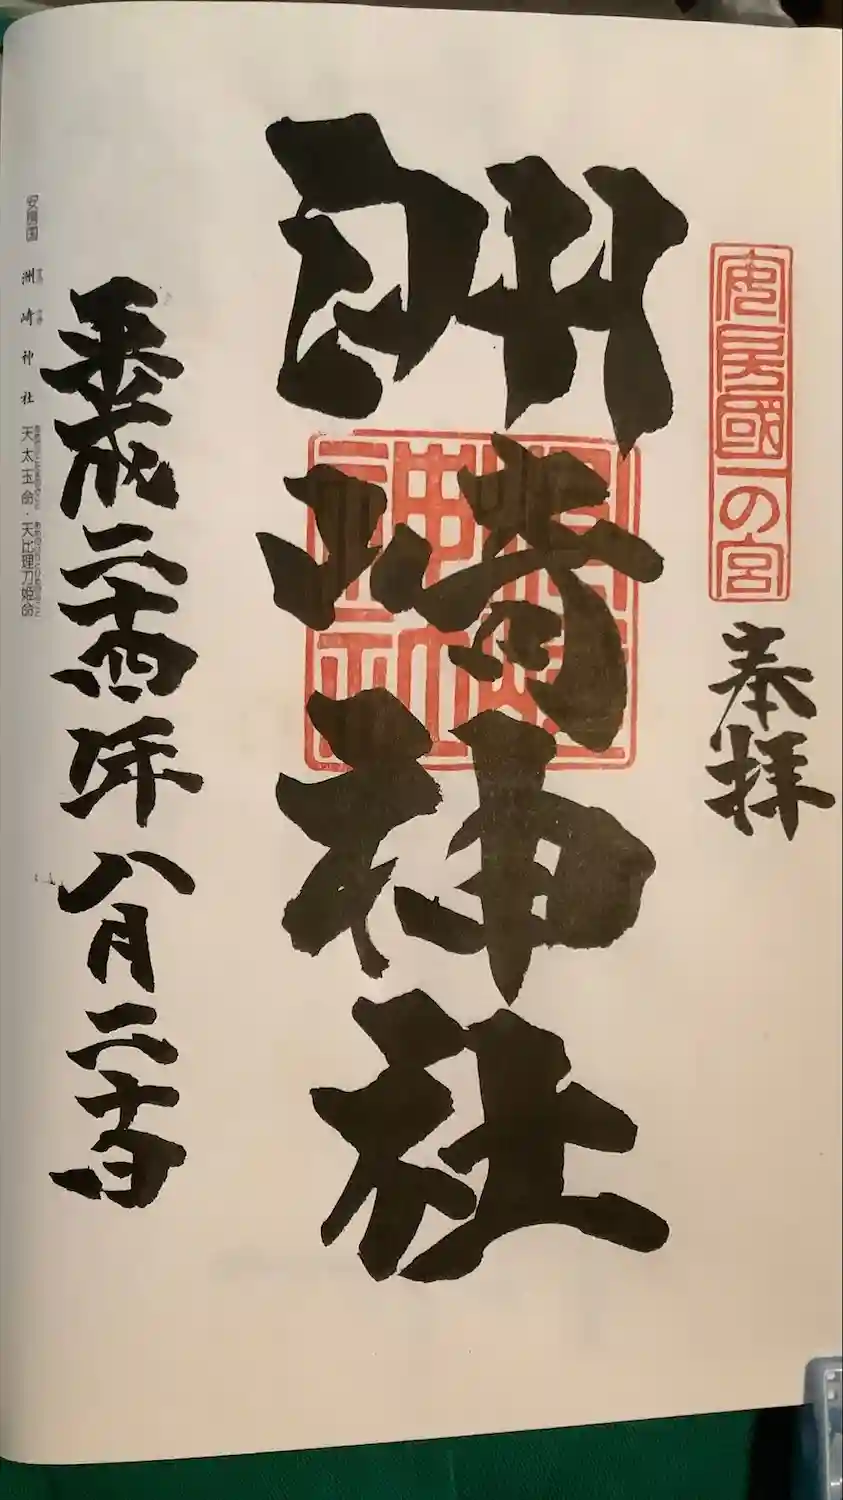 安房國一の宮
奉拝
洲崎神社
洲崎神社
平成二十四年八月二十日
安房国 洲崎神社 天太玉命・天比理刀姫命